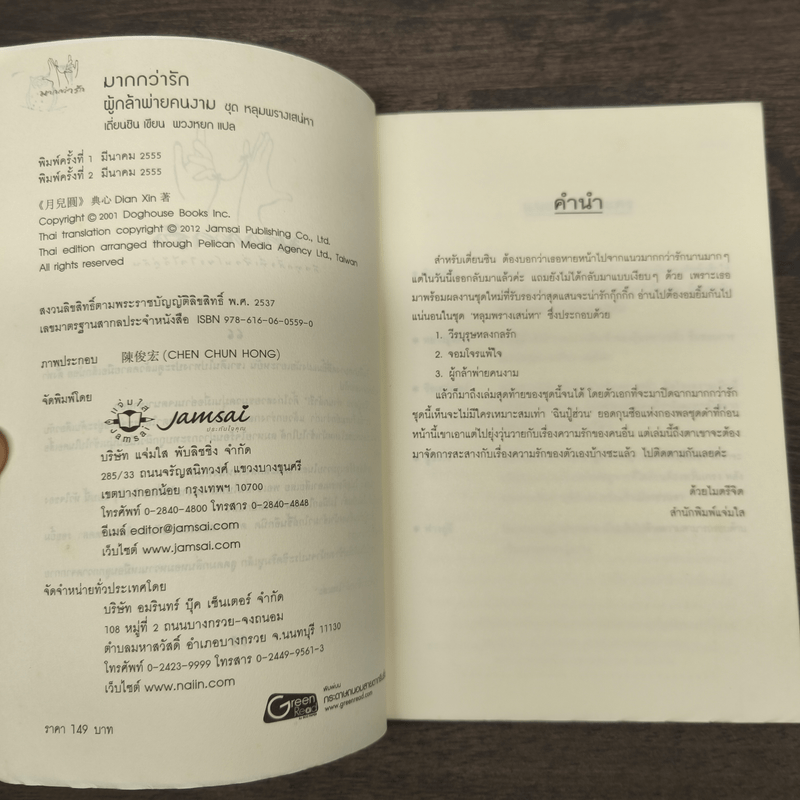 มากกว่ารัก
มากกว่ารัก
ผู้กล้าพ่ายคนงาม ชุด หลุมพรางเสน่หา
เตี่ยนซิน เขียน พวงหยก แปล
พิมพ์ครั้งที่ 1 มีนาคม 2555
พิมพ์ครั้งที่ 2 มีนาคม 2555
《月兒圓》典心 Dian Xin 著
Copyright © 2001 Doghouse Books Inc.
Thai translation copyright © 2012 Jamsai Publishing Co., Ltd.
Thai edition arranged through Pelican Media Agency Ltd., Taiwan
All rights reserved
สงวนลิขสิทธิ์ตามพระราชบัญญัติลิขสิทธิ์ พ.ศ. 2537
เลขมาตรฐานสากลประจำหนังสือ ISBN 978-616-06-0559-0
ภาพประกอบ 陳俊宏 (CHEN CHUN HONG)
จัดพิมพ์โดย
แจ่มใส
Jamsai
Jamsai
ประทับใจคุณ
บริษัท แจ่มใส พับลิชชิ่ง จำกัด
285/33 ถนนจรัญสนิทวงศ์ แขวงบางขุนศรี
เขตบางกอกน้อย กรุงเทพฯ 10700
โทรศัพท์ 0-2840-4800 โทรสาร 0-2840-4848
อีเมล์ editor@jamsai.com
เว็บไซต์ www.jamsai.com
จัดจำหน่ายทั่วประเทศโดย
บริษัท อมรินทร์ บุ๊ค เซ็นเตอร์ จำกัด
108 หมู่ที่ 2 ถนนบางกรวย-จงถนอม
ตำบลมหาสวัสดิ์ อำเภอบางกรวย จ.นนทบุรี 11130
โทรศัพท์ 0-2423-9999 โทรสาร 0-2449-9561-3
เว็บไซต์ www.naiin.com
Green Read
พิมพ์บน
กระดาษถนอมสายตากรีนรีด
www.greenread.com
ราคา 149 บาท
คำนำ
สำหรับเตี่ยนซิน ต้องบอกว่าเธอหายหน้าไปจากแนวมากกว่ารักนานมากๆ
แต่ในวันนี้เธอกลับมาแล้วค่ะ แถมยังไม่ได้กลับมาแบบเงียบๆ ด้วย เพราะเธอ
มาพร้อมผลงานชุดใหม่ที่รับรองว่าสุดแสนจะน่ารักกุ๊กกิ๊ก อ่านไปต้องอมยิ้มกันไป
แน่นอนในชุด 'หลุมพรางเสน่หา' ซึ่งประกอบด้วย
1. วีรบุรุษหลงกลรัก
2. จอมโจรแพ้ใจ
3. ผู้กล้าพ่ายคนงาม
แล้วก็มาถึงเล่มสุดท้ายของชุดนี้จนได้ โดยตัวเอกที่จะมาปิดฉากมากกว่ารัก
ชุดนี้เห็นจะไม่มีใครเหมาะสมเท่า 'ฉินปู้ฮ่วน' ยอดกุนซือแห่งกองพลชุดดำที่ก่อน
หน้านี้เขาเอาแต่ไปยุ่งวุ่นวายกับเรื่องความรักของคนอื่น แต่เล่มนี้ถึงตาเขาจะต้อง
มาจัดการสะสางกับเรื่องความรักของตัวเองบ้างซะแล้ว ไปติดตามกันเลยค่ะ
ด้วยไมตรีจิต
สำนักพิมพ์แจ่มใส